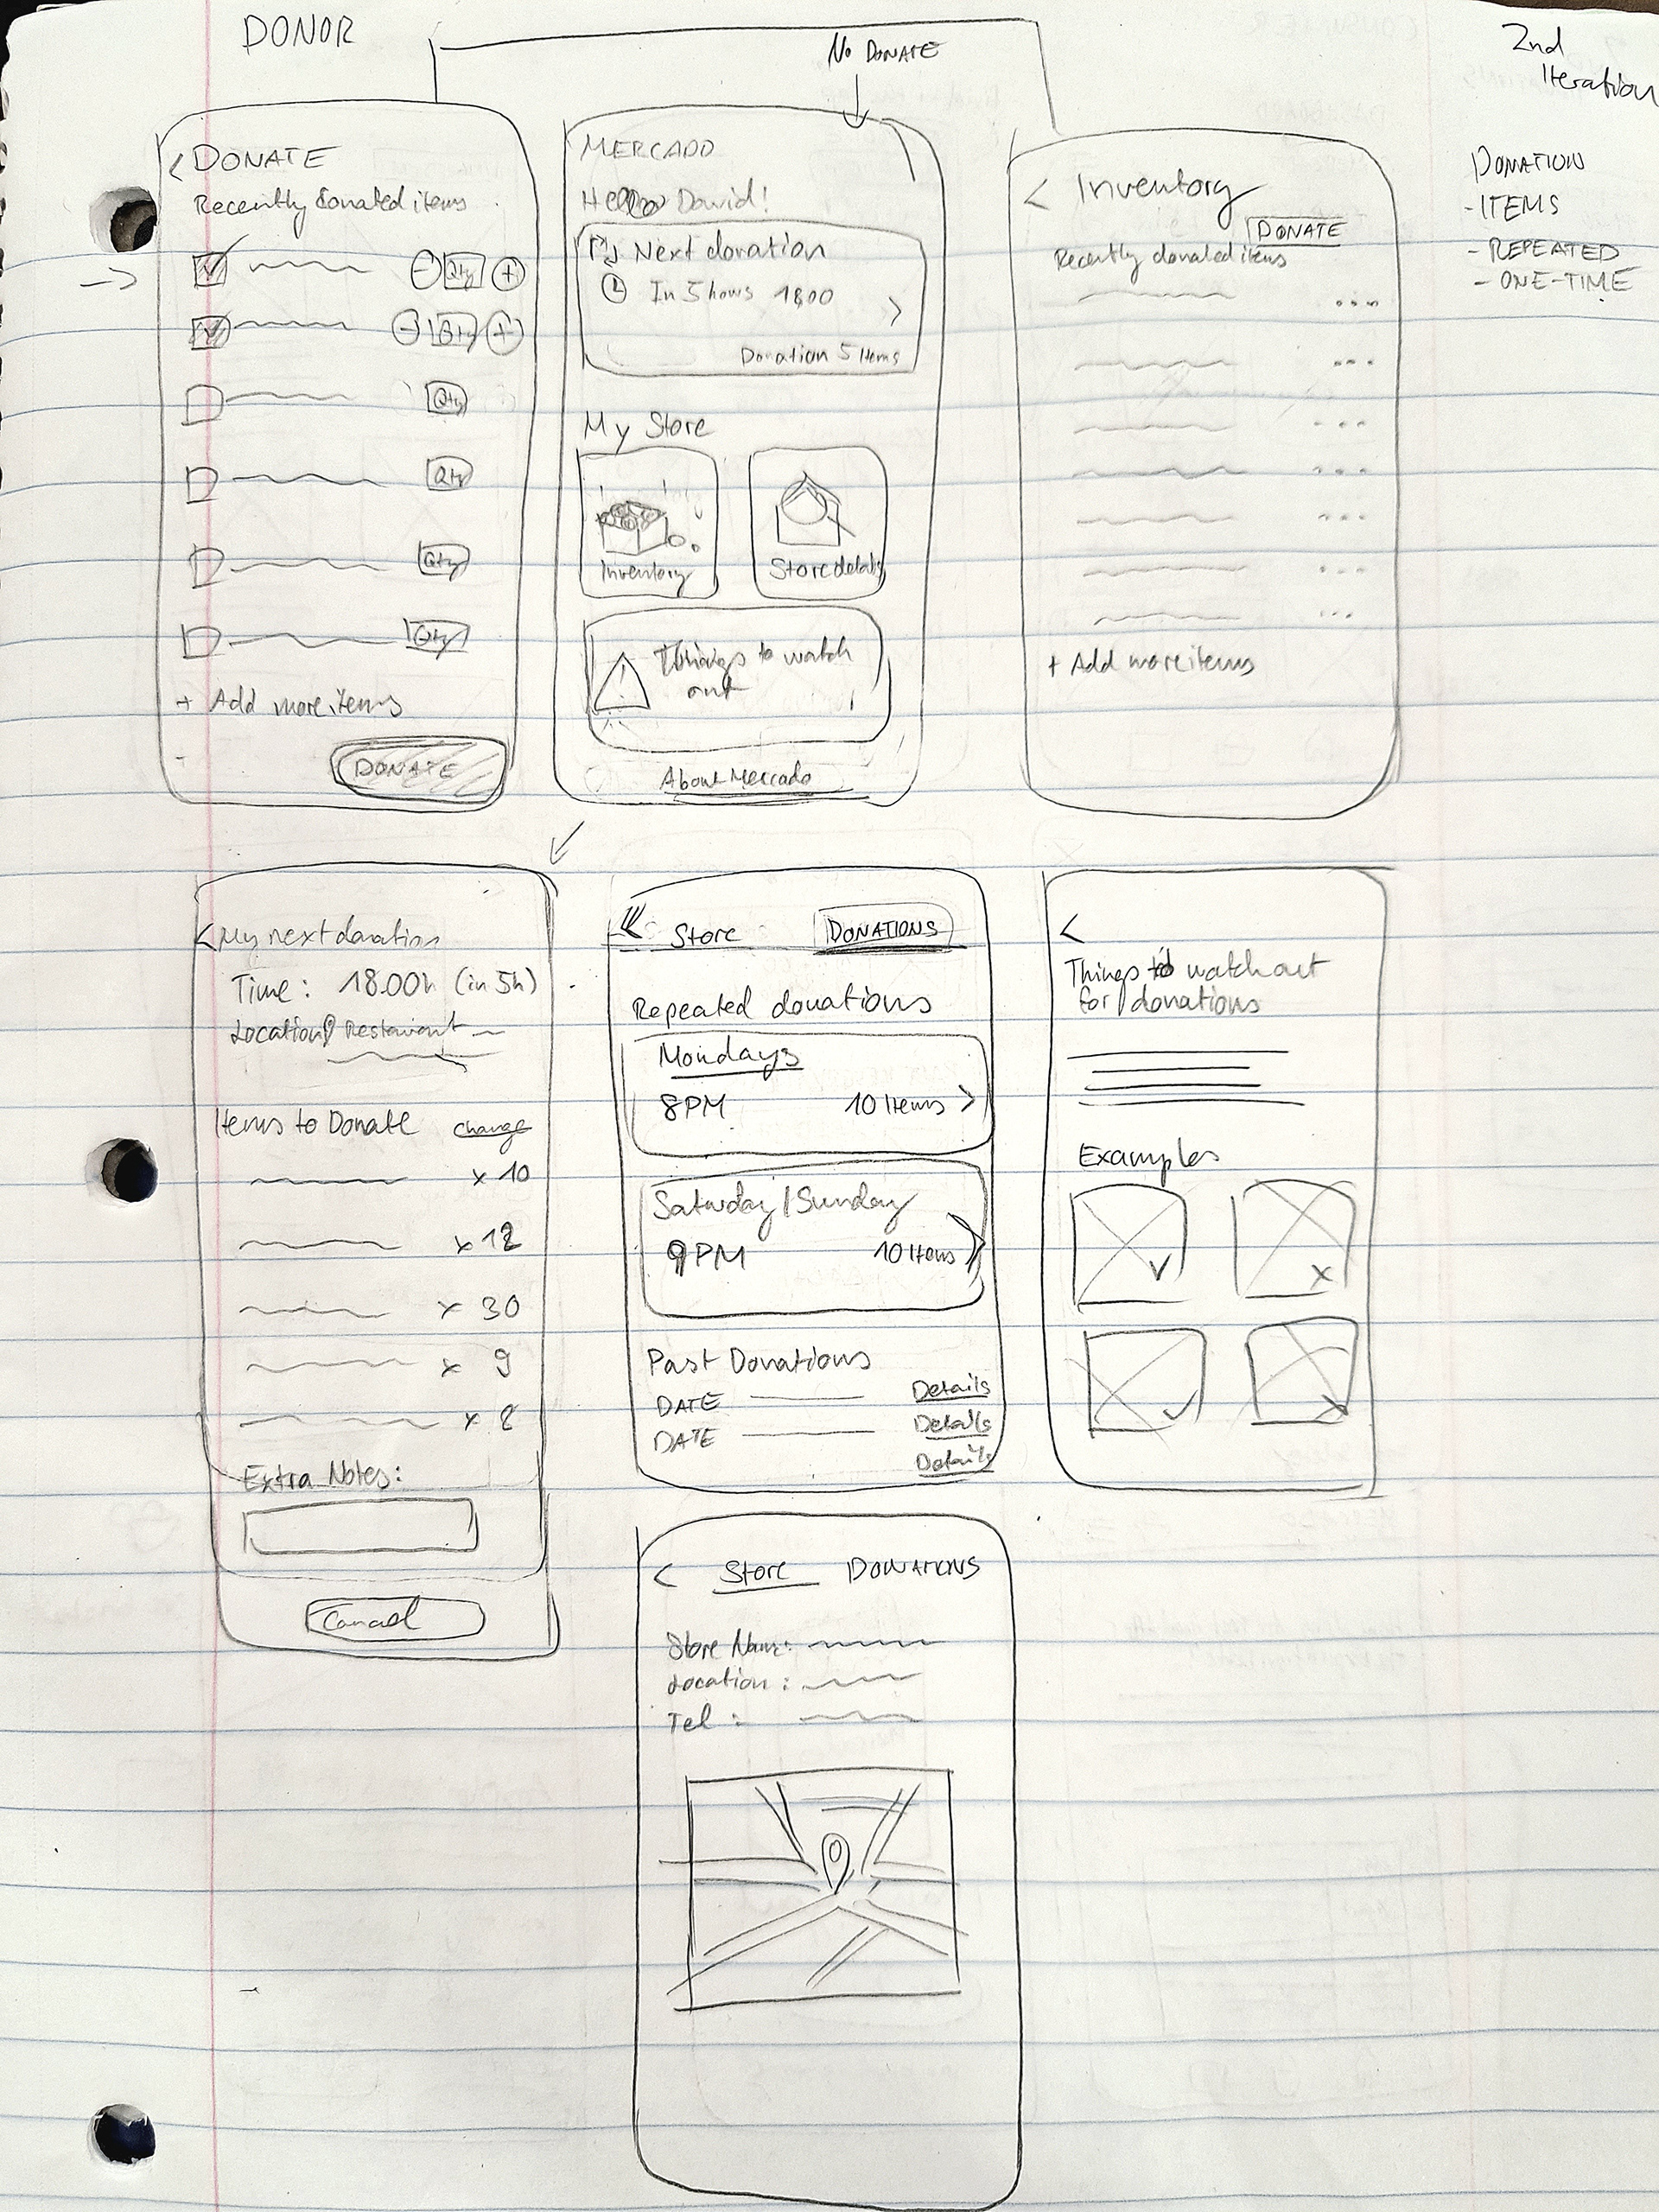 DONOR
No DONATE
2nd
Iteration
DONATION
-ITEMS
- REPEATED
- ONE-TIME
< DONATE
Recently donated items
Qty
Qty
Qty
Qty
Qty
Qty
+ Add more items
DONATE
MERCADO
Hello David!
Next donation
In 5 hours 1800
>
Donation 5 Items
My Store
Inventory
Store details
Things to watch
out
About Mercado
< Inventory
DONATE
Recently donated items
...
...
...
...
...
...
...
+ Add more items
< My next donation
Time: 18.00h (in 5h)
Location Restaurant
Items to Donate change
x 10
x 12
x 30
x 9
x 2
Extra Notes:
Cancel
< Store DONATIONS
Repeated donations
Mondays
8PM 10 Items >
Saturday/Sunday
9PM 10 Items >
Past Donations
DATE Details
DATE Details
Details
<
Things to watch out
for donations
Examples
< Store DONATIONS
Store Name:
Location:
Tel: